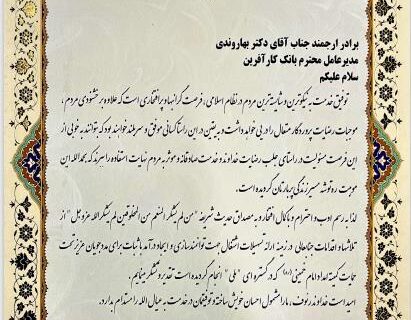 برادر ارجمند جناب آقای دکتر بهاروندی
مدیرعامل محترم بانک کارآفرین
سلام علیکم
توفیق خدمت به نیکوترین و شایسته ترین مردم در نظام اسلامی، فرصت گرانبها و پرافتخاری است که علاوه بر خشنودی مردم،
موجبات رضایت پروردگار متعال را در پی خواهد داشت و به یقین در این راستا کسانی موفق و سربلند خواهند بود که بتوانند به خوبی از
این فرصت مسئولیت در راستای جلب رضایت خداوند و خدمت صادقانه و موثر به مردم نهایت استفاده را ببرند که بحمدالله این
موهبت ره توشه مسیر زندگی پربارتان گردیده است.
لذا به رسم ادب و احترام و با کمال افتخار و به مصداق حدیث شریفه "من لم یشکر المنعم من المخلوقین لم یشکر الله عزوجل" از
تلاشها و اقدامات جنابعالی در زمینه ارائه تسهیلات اشتغال جهت توانمندسازی و ایجاد درآمد با ثبات برای مددجویان عزیز تحت
حمایت کمیته امداد امام خمینی (ره) که در گستره ای "ملی" انجام گردیده است تقدیر و تشکر مینمایم.
امید است خداوند رئوف، ما را مشمول احسان خویش ساخته و توفیقمان در خدمت به عیال الله را مستدام بدارد.